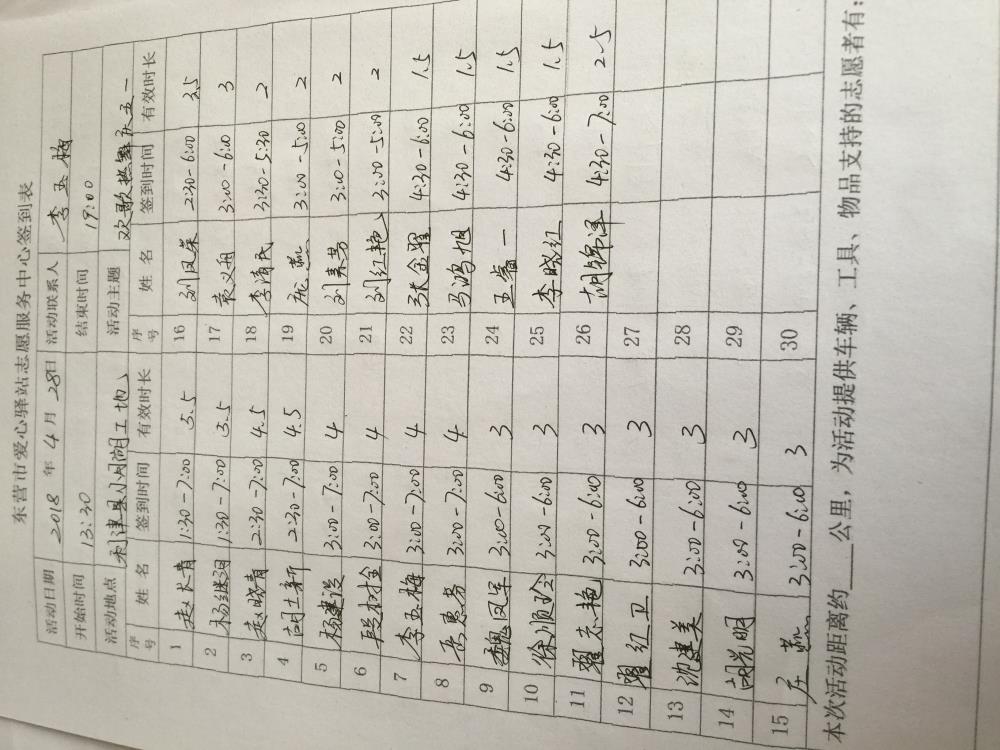 东营市爱心驿站志愿服务中心签到表
活动日期 2018 年 4 月 28日 活动联系人 李玉梅
开始时间 13:30 结束时间 19:00
活动地点 利津县小月湖工地 活动主题 欢歌热舞庆五一
序号 姓 名 签到时间 有效时长 序号 姓 名 签到时间 有效时长
1 赵长青 1:30-7:00 5.5 16 刘凤荣 2:30-6:00 3.5
2 杨继润 1:30-7:00 5.5 17 袁义朋 3:00-6:00 3
3 赵晓青 2:30-7:00 4.5 18 李清民 3:30-5:30 2
4 胡士新 2:30-7:00 4.5 19 庞燕 3:00-5:00 2
5 杨建设 3:00-7:00 4 20 刘素芳 3:00-5:00 2
6 段林全 3:00-7:00 4 21 刘红艳 3:00-5:00 2
7 李玉梅 3:00-7:00 4 22 张金翠 4:30-6:00 1.5
8 岳惠芳 3:00-7:00 4 23 马鸿旭 4:30-6:00 1.5
9 魏凤军 3:00-6:00 3 24 王睿一 4:30-6:00 1.5
10 徐顺玲 3:00-6:00 3 25 李晓红 4:30-6:00 1.5
11 翟东艳 3:00-6:00 3 26 胡锦泽 4:30-7:00 2.5
12 翟红卫 3:00-6:00 3 27
13 沈建美 3:00-6:00 3 28
14 胡光明 3:00-6:00 3 29
15 左燕 3:00-6:00 3 30
本次活动距离约___公里，为活动提供车辆、工具、物品支持的志愿者有: